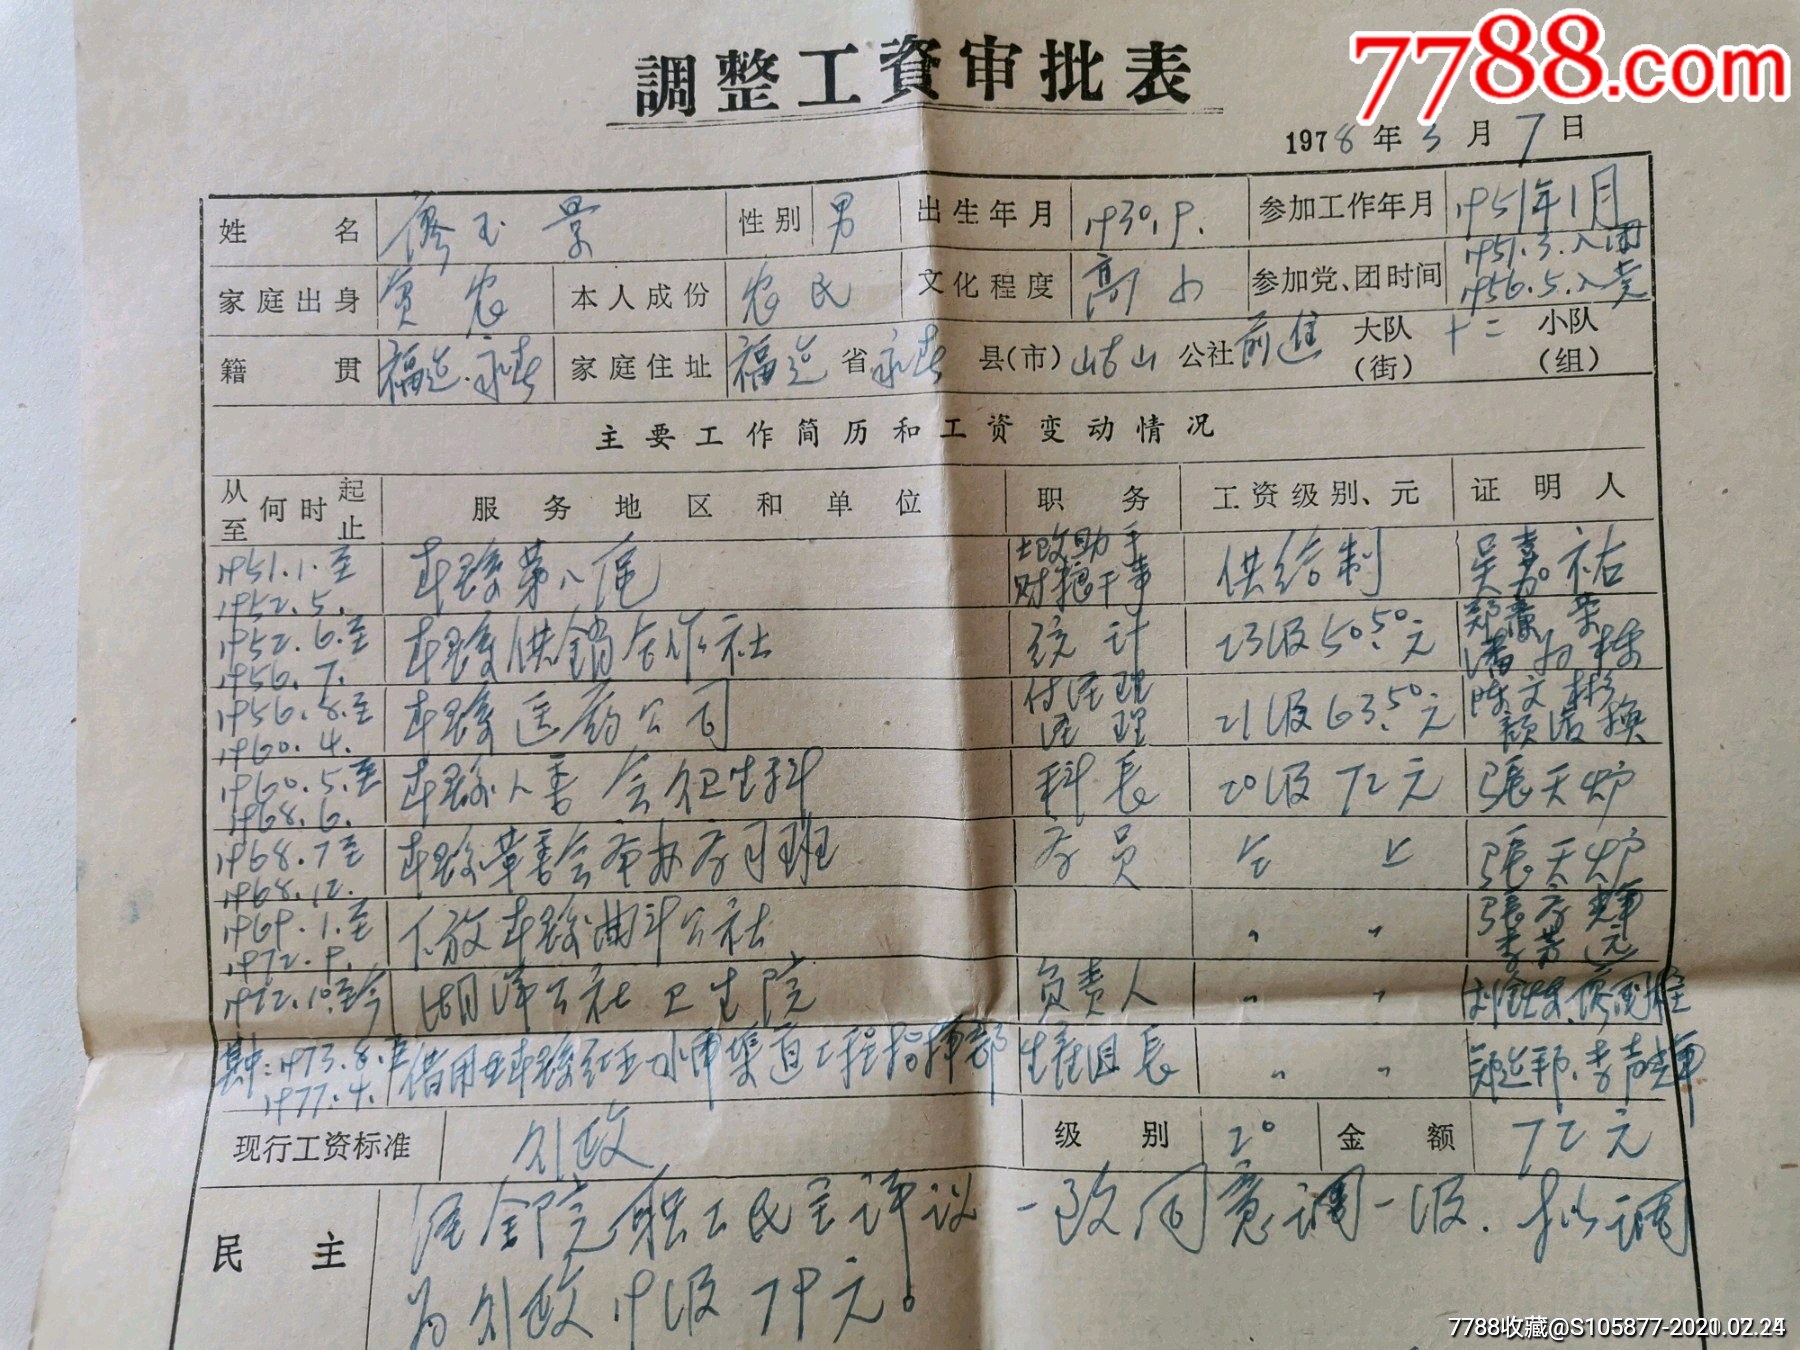 7788.com
調整工資审批表
1978年3月7日
姓名 廖玉景 性别 男 出生年月 1930.9. 参加工作年月 1951年1月
家庭出身 贫农 本人成份 农民 文化程度 高小 参加党、团时间 1951.3.入团 1956.5.入党
籍贯 福建.永春 家庭住址 福建省永春县(市)岵山公社前进大队(街)十二小队(组)
主要工作简历和工资变动情况
从何时起至何时止 服务地区和单位 职务 工资级别、元 证明人
1951.1.至1952.5. 本县第八区 土改助手 财粮干事 供给制 吴嘉祐
1952.6.至1956.7. 本县供销合作社 统计 23级50.50元
1956.8.至1960.4. 本县医药公司 付经理 经理 21级63.50元 陈文彬 颜
1960.5.至1968.6. 本县人委会卫生科 科长 20级72元 張天炉
1968.7至1968.12. 本县革委会 学习班 学员 張天炉
1969.1.至1972.9. 下放本县曲斗公社 〃 〃
1972.10.至今 湖洋公社卫生院 负责人 〃 〃
其中:1973.8.至1977.4. 借用在本县 水库渠道工程指挥部 组长 〃 〃
现行工资标准 行政 级别 20 金额 72元
民主 经全院职工民主评议一致同意调一级.拟调
为行政19级79元。
7788收藏@S105877-2020.02.24